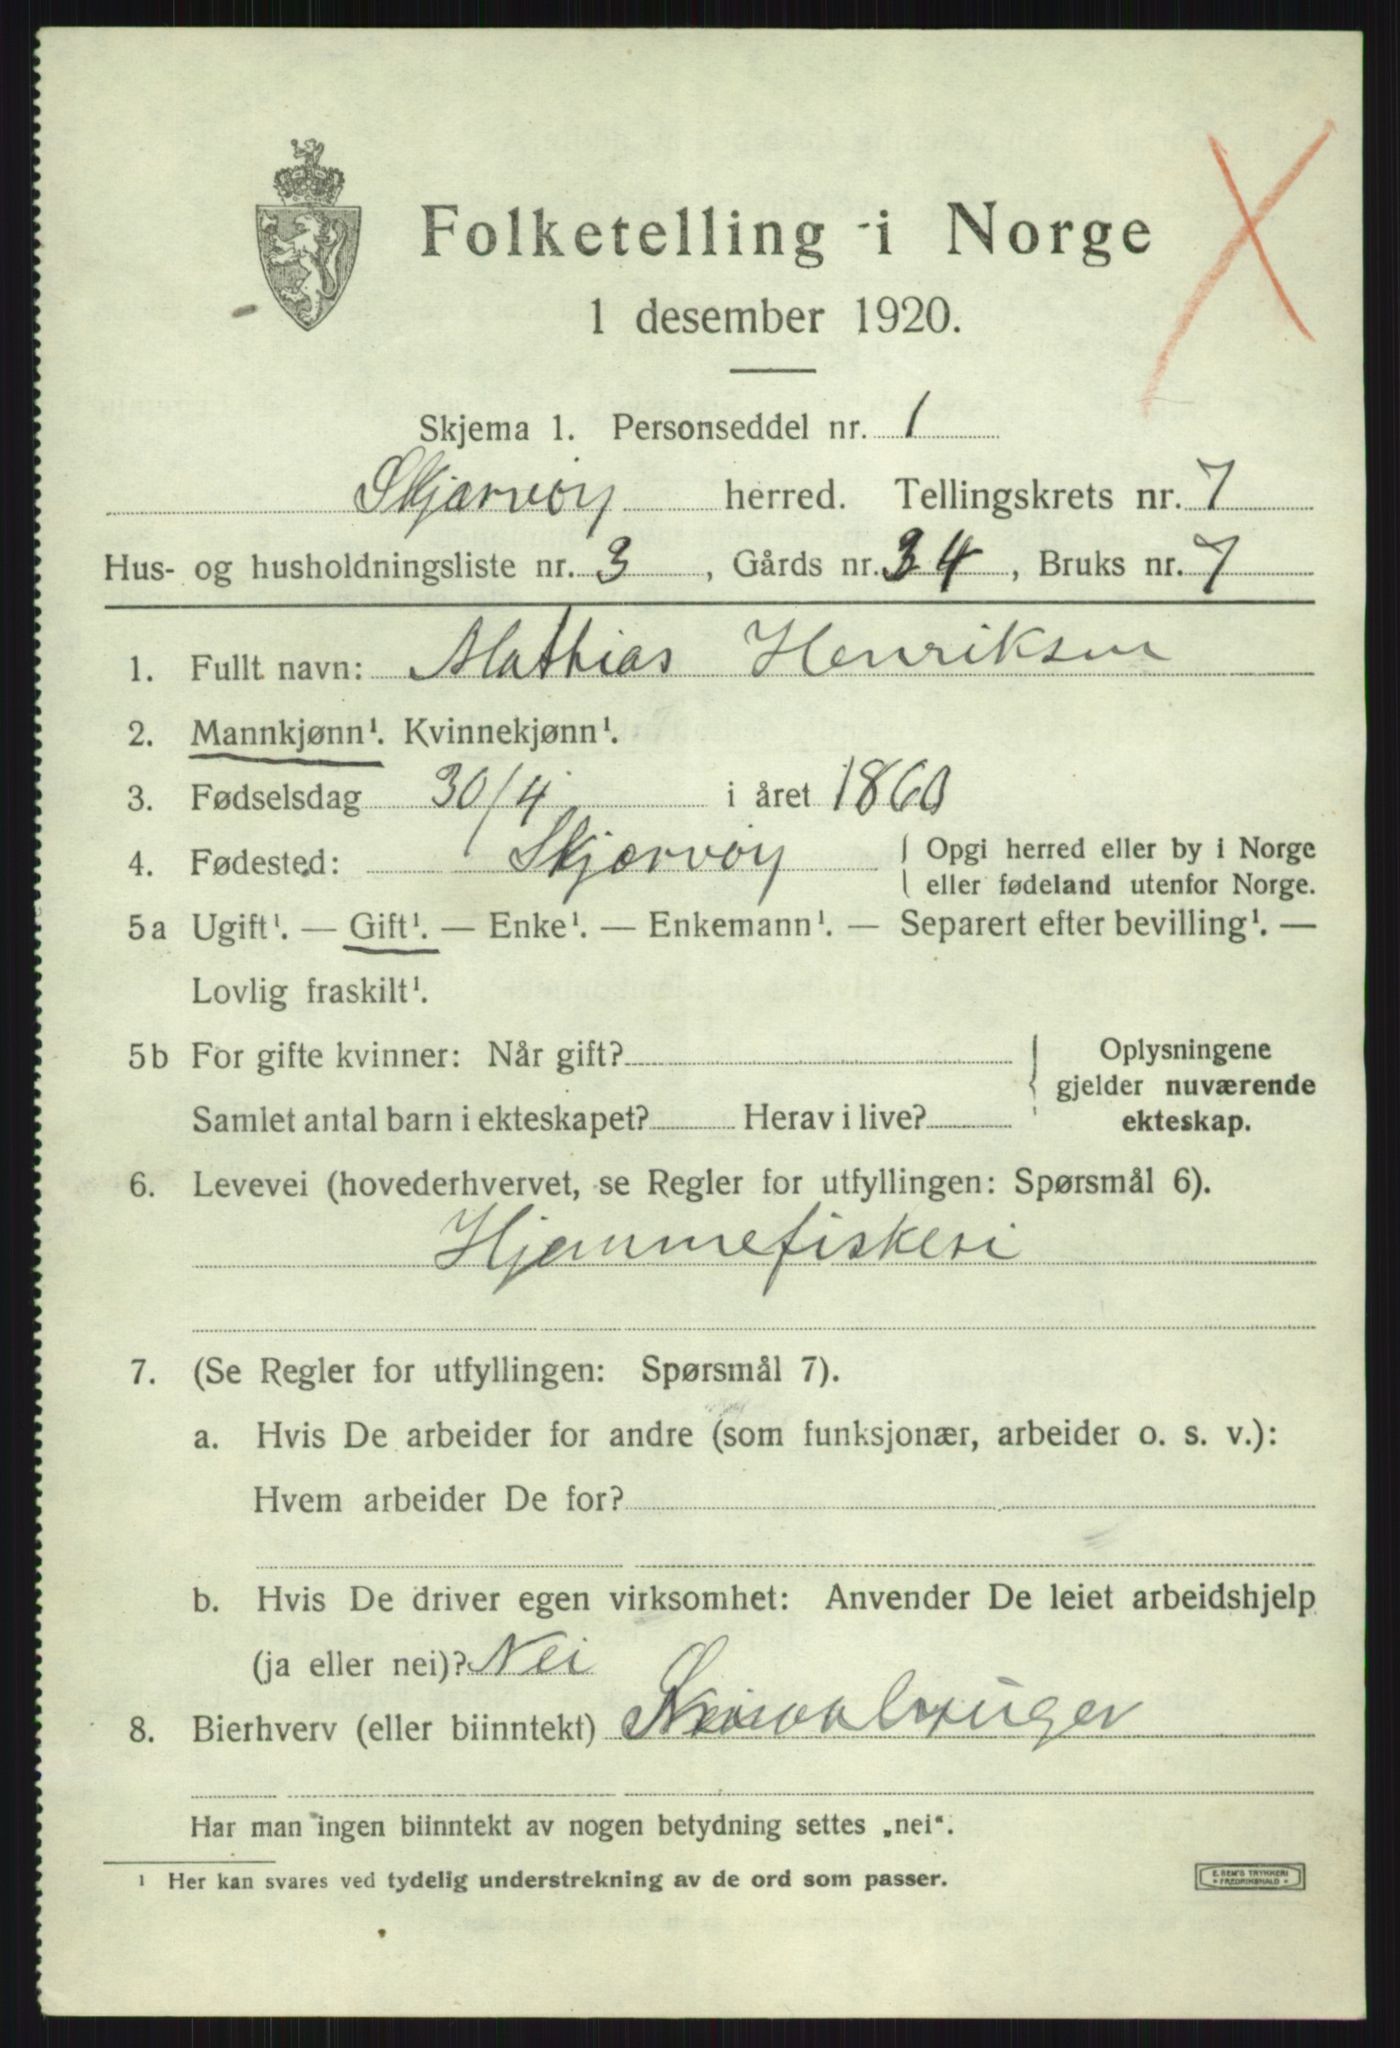 Folketelling i Norge
1 desember 1920.
Skjema 1. Personseddel nr. 1
Skjærvøy herred. Tellingskrets nr. 7
Hus- og husholdningsliste nr. 3, Gårds nr. 34, Bruks nr. 7
1. Fullt navn: Mathias Henriksen
2. Mannkjønn¹. Kvinnekjønn¹.
3. Fødselsdag 30/4 i året 1860
4. Fødested: Skjærvøy { Opgi herred eller by i Norge
eller fødeland utenfor Norge.
5a Ugift¹. — Gift¹. — Enke¹. — Enkemann¹. — Separert efter bevilling¹. —
Lovlig fraskilt¹.
5b For gifte kvinner: Når gift?
Samlet antal barn i ekteskapet? Herav i live?
{ Oplysningene
gjelder nuværende
ekteskap.
6. Levevei (hovederhvervet, se Regler for utfyllingen: Spørsmål 6).
Hjemmefiskeri
7. (Se Regler for utfyllingen: Spørsmål 7).
a. Hvis De arbeider for andre (som funksjonær, arbeider o. s. v.):
Hvem arbeider De for?
b. Hvis De driver egen virksomhet: Anvender De leiet arbeidshjelp
(ja eller nei)? Nei
8. Bierhverv (eller biinntekt)
Har man ingen biinntekt av nogen betydning settes „nei“.
¹ Her kan svares ved tydelig understrekning av de ord som passer.
E. SEM'S TRYKKERI
* FREDRIKSHALD *